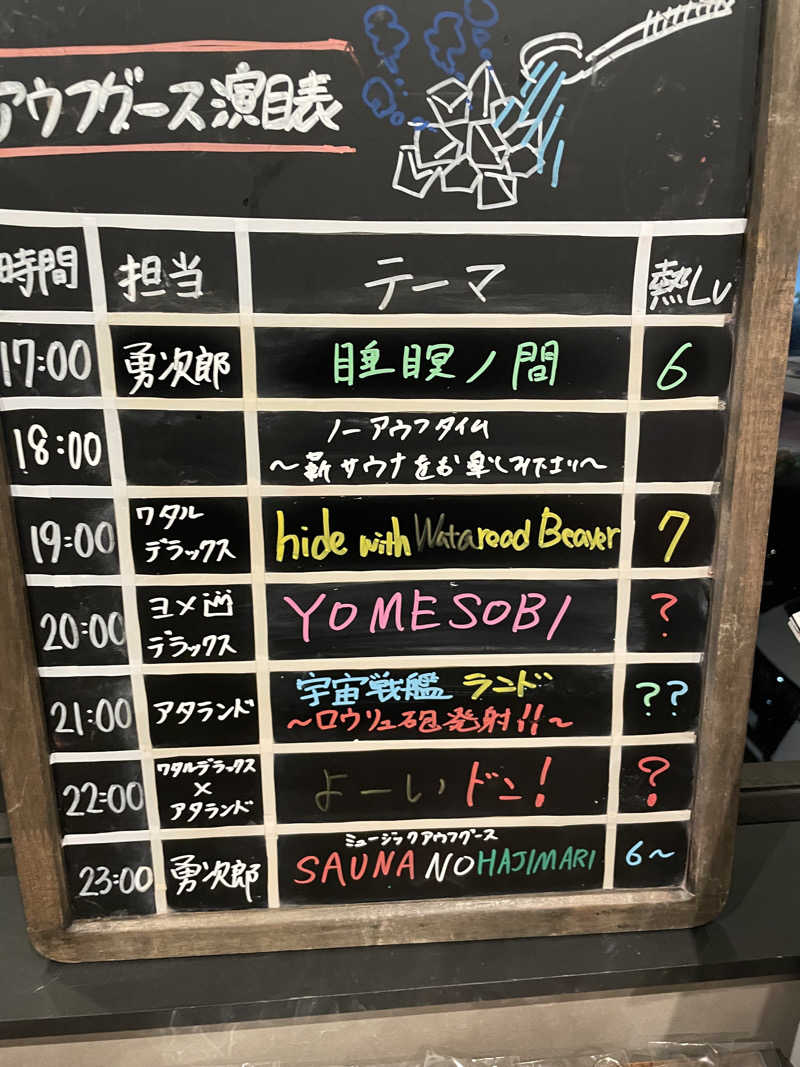 アウフグース演目表
時間 担当 テーマ 熱Lv
17:00 勇次郎 睡瞑ノ間 6
18:00 ノーアウフタイム
〜薪サウナをお楽しみ下さい〜
19:00 ワタル
デラックス hide with Wataread Beaver 7
20:00 ヨメ凶
デラックス YOMESOBI ?
21:00 アタランド 宇宙戦艦 ランド
〜ロウリュ砲発射!!〜 ??
22:00 ワタルデラックス
×
アタランド よーいドン! ?
23:00 勇次郎 ミュージックアウフグース
SAUNA NO HAJIMARI 6〜